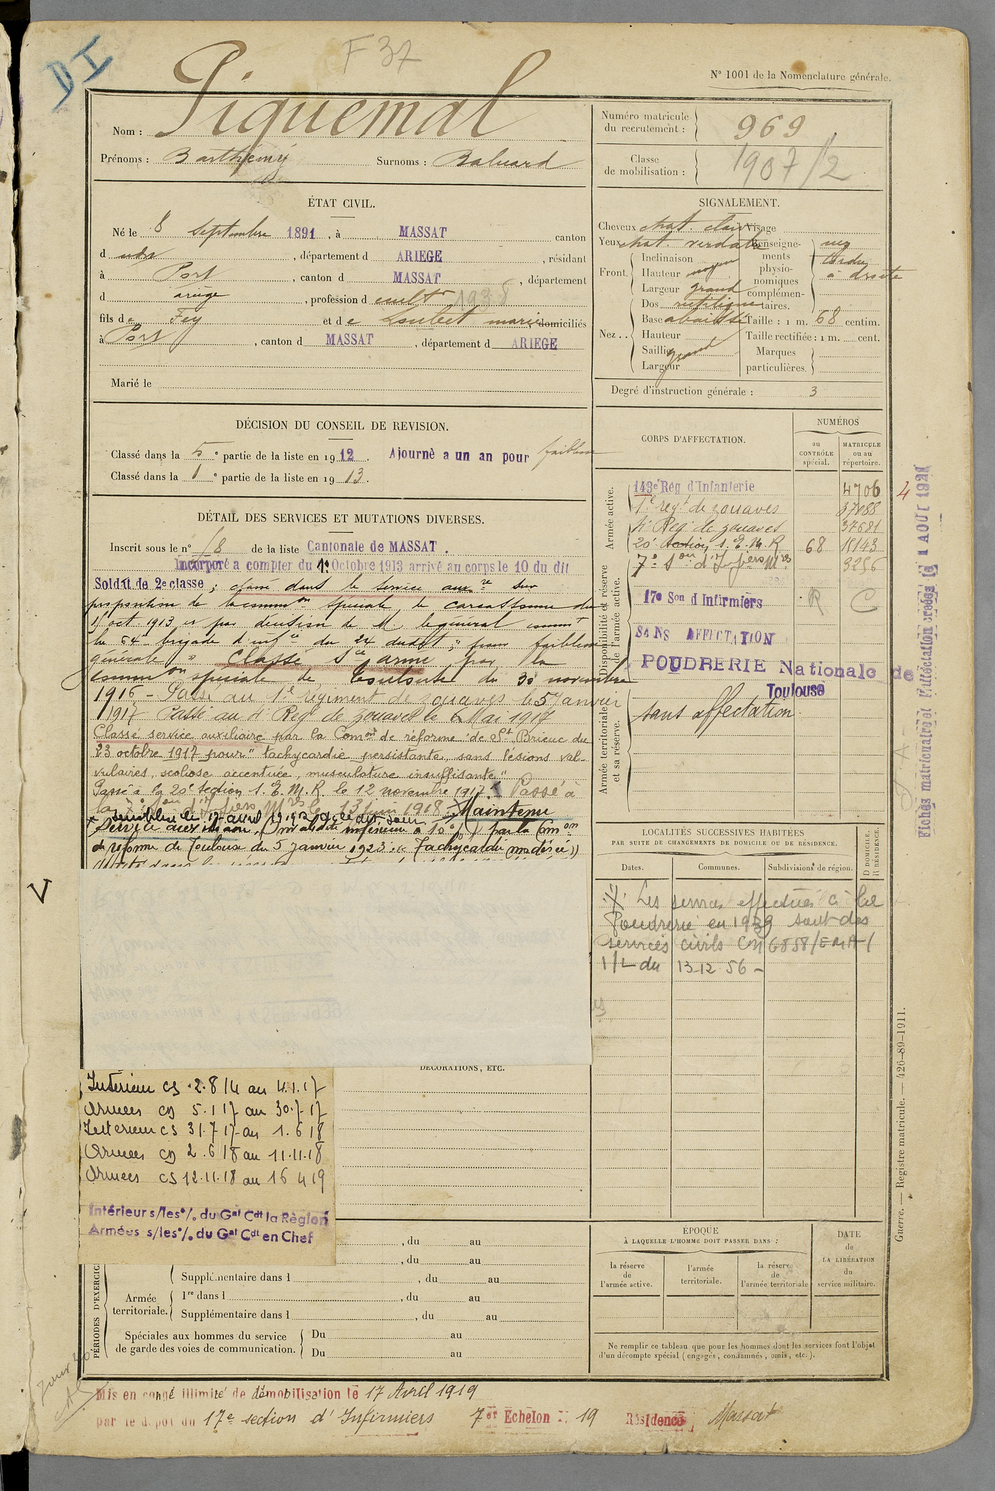 DI
F 37
N° 1001 de la Nomenclature générale.
Nom : Piquemal
Prénoms : Barthémy Surnoms : Baluard
Numéro matricule du recrutement : 969
Classe de mobilisation : 1907/2
ÉTAT CIVIL.
Né le 8 septembre 1891, à MASSAT canton
d udt, département d ARIEGE, résidant
à Port, canton d MASSAT, département
d ariège, profession d cultr 1938
fils de Fey et de Loubet marie domiciliés
à Port, canton d MASSAT, département d ARIEGE
Marié le
SIGNALEMENT.
Cheveux chat. clair Visage
Yeux chat. verdatre Renseignements physionomiques complémentaires.
Front. Inclinaison moyen
Hauteur
Largeur grand
Nez.. Dos rectiligne
Base abaissé Taille : 1 m. 68 centim.
Hauteur Taille rectifiée : 1 m. cent.
Saillie grand Marques
Largeur particulières.
nez
tordu
à droite
Degré d'instruction générale : 3
DÉCISION DU CONSEIL DE REVISION.
Classé dans la 5e partie de la liste en 1912. Ajourné a un an pour faiblesse
Classé dans la 1e partie de la liste en 1913.
DÉTAIL DES SERVICES ET MUTATIONS DIVERSES.
Inscrit sous le n° 18 de la liste Cantonale de MASSAT.
Incorporé a compter du 1° Octobre 1913 arrivé au corps le 10 du dit
Soldat de 2e classe ; classé dans le service auxre sur
proposition de la common speciale de carcassonne du
oct 1913 et par decision de M. le general commt
la 64e brigade d'infie du 24 dudit ; pour faiblesse
générale. Classé Sce armé par la
common speciale de Toulouse du 30 novembre
1916 - Passé au 1er régiment de zouaves le 5 Janvier
1917. Passé au 4e Regt de zouaves le 6 Mai 1917
Classé service auxiliaire par la Comon de réforme de St Brieuc du
23 octobre 1917 pour "tachycardie persistante, sans lésions val-
vulaires, scoliose accentuée, musculature insuffisante"
Passé à la 20e section S. E. M. R. le 12 novembre 1917. Passé à
la 7e Son d'Infiers Mres le 13 juin 1918. Maintenu
service auxiliaire, Invalidité inférieure à 10%, par la Comon
de reforme de Toulouse du 5 janvier 1923 : "Tachycardie modérée"
CORPS D'AFFECTATION.
NUMÉROS
au CONTRÔLE spécial.
MATRICULE ou au répertoire.
Armée active.
143e Rég d'Infanterie 4706
1er regt de zouaves 37088
4e Regt de zouaves 37681
20e section S. E. M. R 68 18143
7e Son d'Infiers Mres 3256
Disponibilité et réserve de l'armée active.
17e Son d'Infirmiers R C
SANS AFFECTATION
POUDRERIE Nationale de Toulouse
Armée territoriale et sa réserve.
sans affectation.
4
LOCALITÉS SUCCESSIVES HABITÉES
PAR SUITE DE CHANGEMENTS DE DOMICILE OU DE RÉSIDENCE.
Dates. Communes. Subdivisions de région. D DOMICILE. R RÉSIDENCE.
Les services effectués à la
Poudrerie en 1939 sont des
services civils CM 6858/EMA/
1/L du 13-12-56 -
V
DÉCORATIONS, ETC.
Intérieur CS 2.8.14 au 4.1.17
Armées CS 5.1.17 au 30.7.17
Intérieur CS 31.7.17 au 1.6.18
Armées CS 2.6.18 au 11.11.18
Armées CS 12.11.18 au 16 4 19
Intérieur s/les°/. du Gal Cdt la Région
Armées s/les°/. du Gal Cdt en Chef
PÉRIODES D'EXERCICES
, du au
, du au
Supplémentaire dans l , du au
Armée territoriale. 1re dans l , du au
Supplémentaire dans l , du au
Spéciales aux hommes du service de garde des voies de communication. Du au
Du au
ÉPOQUE
À LAQUELLE L'HOMME DOIT PASSER DANS :
la réserve de l'armée active.
l'armée territoriale.
la réserve de l'armée territoriale
DATE de LA LIBÉRATION du service militaire.
Ne remplir ce tableau que pour les hommes dont les services font l'objet
d'un décompte spécial (engagés, condamnés, omis, etc.).
Guerre. — Registre matricule. — 426-89-1911.
Mis en congé illimité de démobilisation le 17 Avril 1919
par le dépot du 17e section d'Infirmiers 7er Echelon N° 19 Résidence Massat